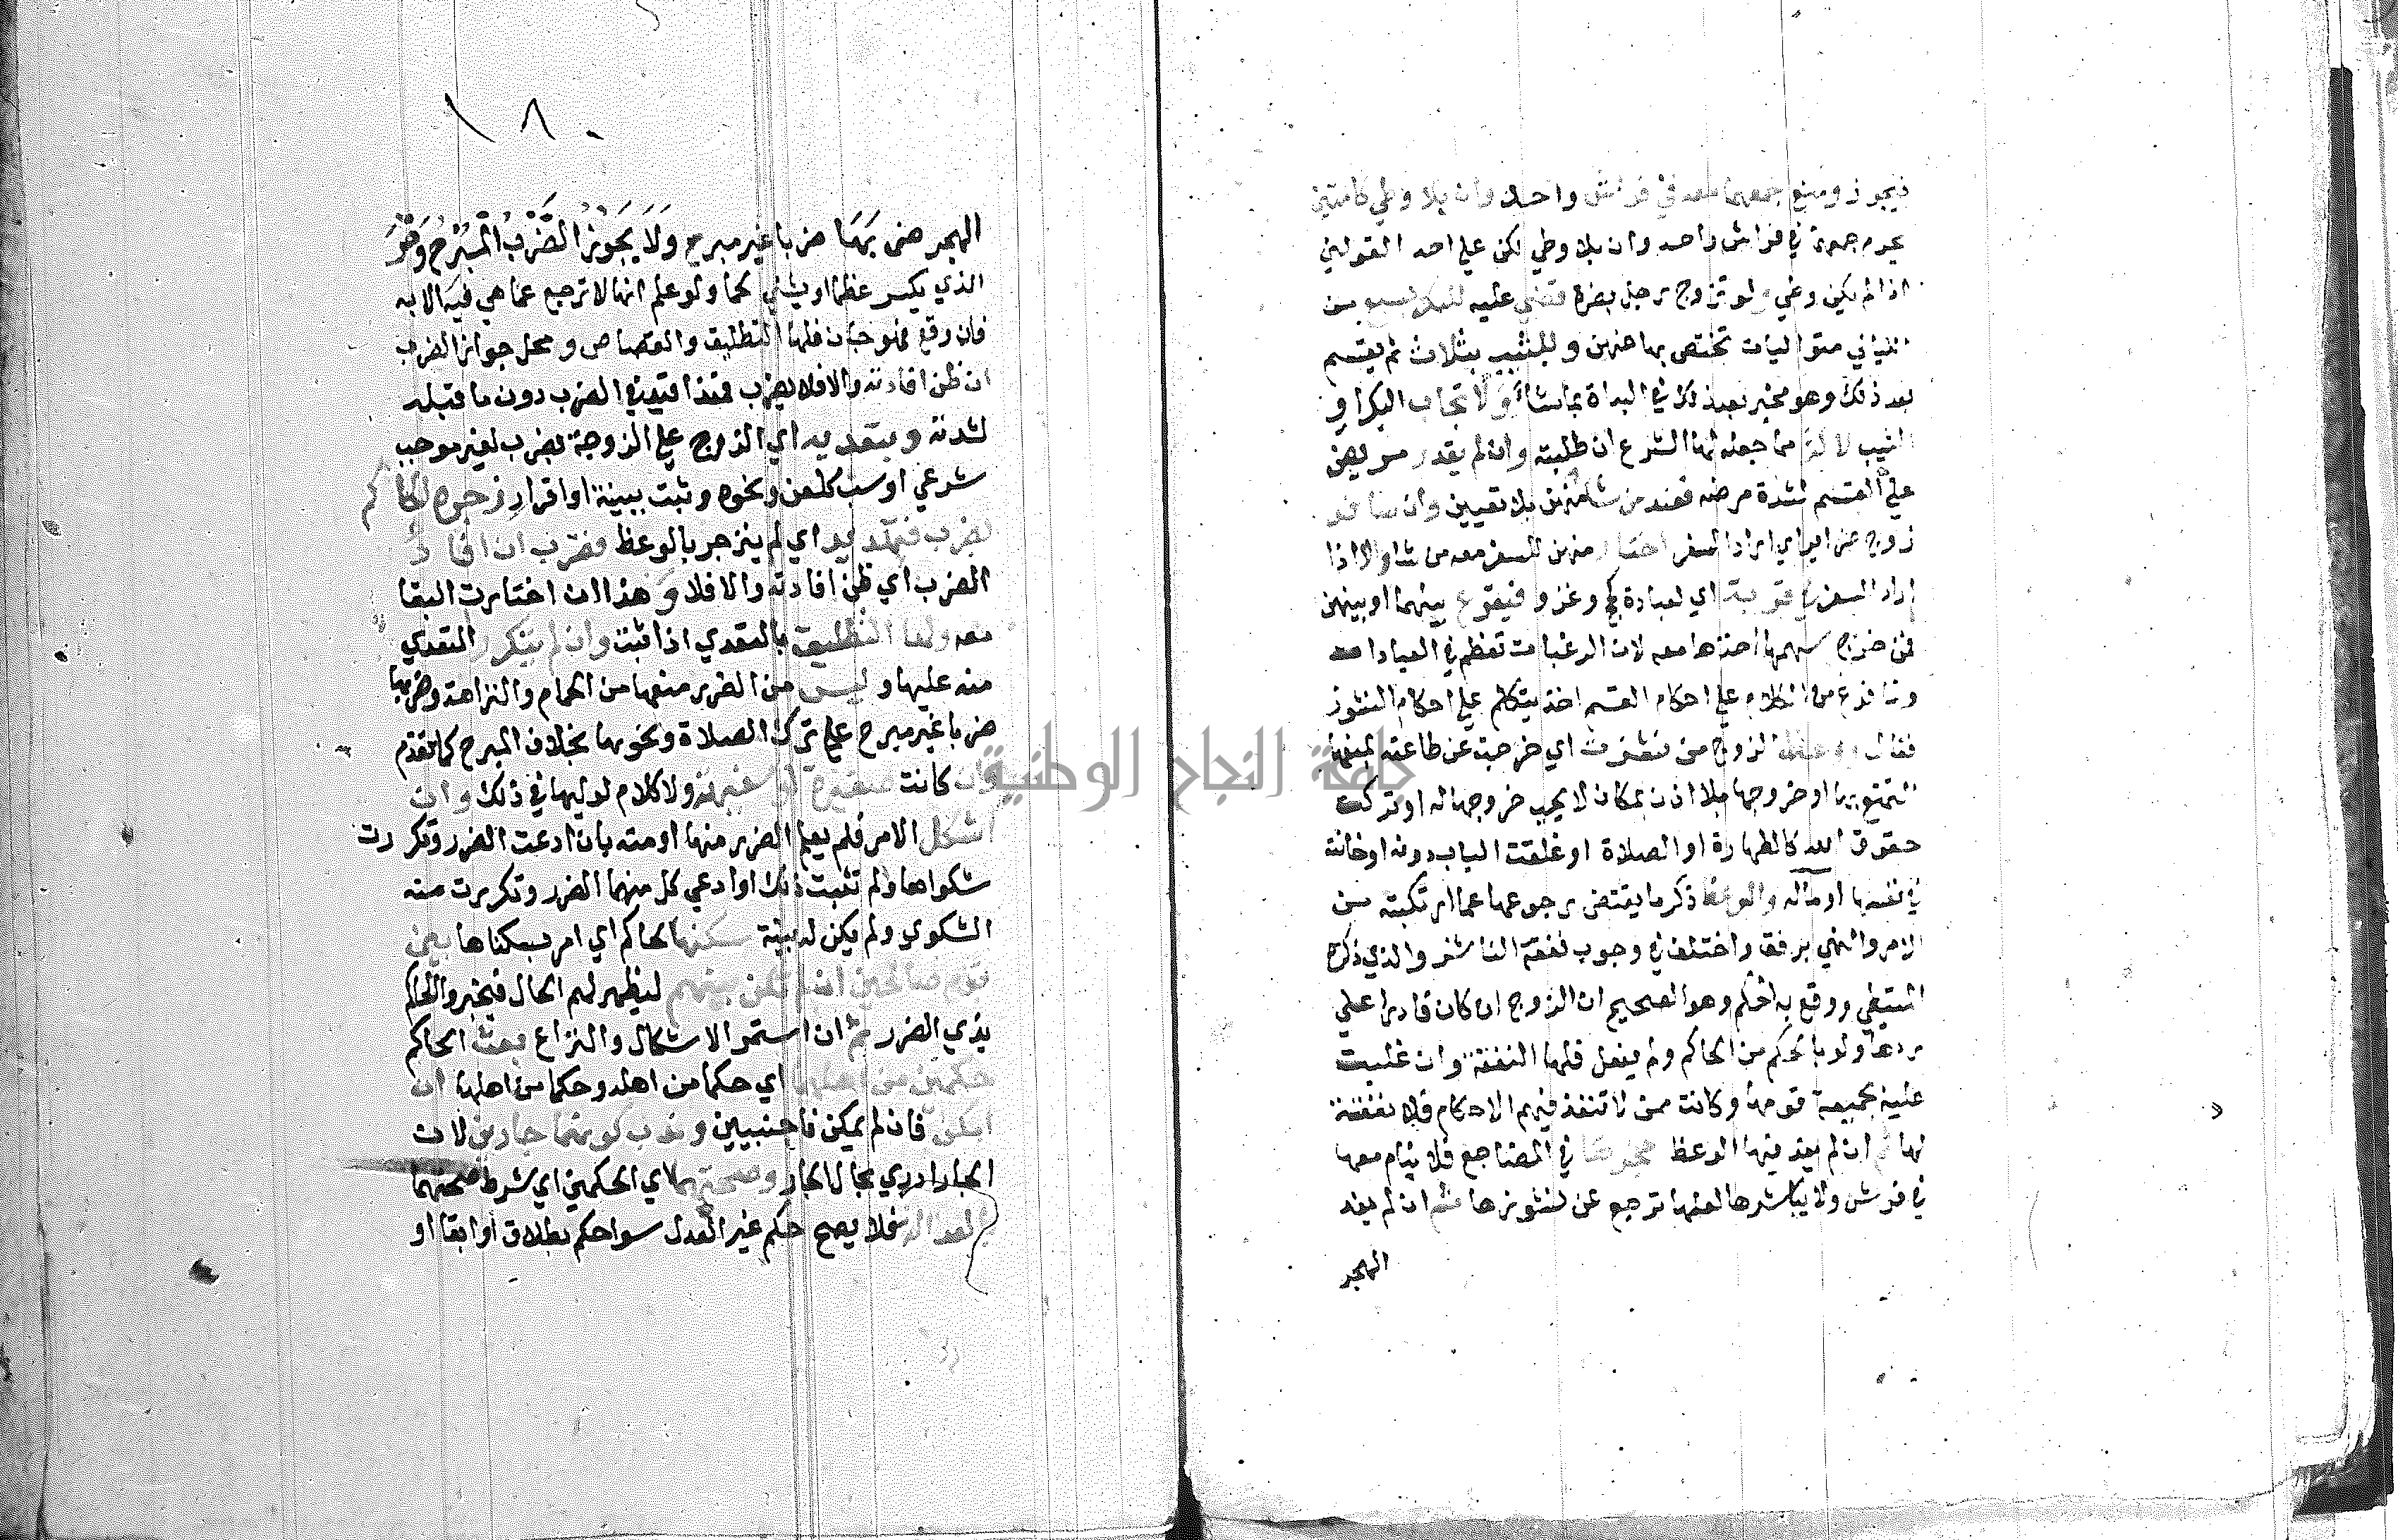 فيجوز ومنع جمعهما معه في فراش واحد وان بلا وطي كامتين
يحرم جمعهما في فراش واحد وان بلا وطي لكن علي احد القولين
اذا لم يكن وطي ولو تزوج رجل بضرة قضي عليه للبكر بسبع من
الليالي متواليات تختص بها عنهن وللثيب بثلاث ثم يقسم
بعد ذلك وهو مخير بعد ذلك في البداة بما شاء ولا تجاب البكر او
الثيب لا مما جعله لها الشرع ان طلبته وان لم يقدر مريض
علي القسم لشدة مرضه فعند من شا منهن بلا تعيين وان سافر
زوج ضراير اي اراد السفر اختار منهن للسفر معه من شا والا اذا
اراد السفر في قربة اي لعبادة كحج وغزو فيقرع بينهما او بينهن
فمن خرج سهمها اخذها معه لان الرغبات تعظم في العبادات
ولما فرغ من الكلام علي احكام القسم اخذ يتكلم علي احكام النشوز
فقال ووعظ الزوج من نشزت اي خرجت عن طاعته بمنعها
التمتع بها او خروجها بلا اذن بمكان لا يجب خروجها له او تركت
حقوق الله كالطهارة او الصلاة او غلقت الباب دونه او خانته
في نفسها او ماله والوعظ ذكر ما يقتضي رجوعها عما ارتكبته من
الامر والنهي برفق واختلف في وجوب نفقة الناشز والذي ذكره
المتيطي ووقع به الحكم وهو الصحيح ان الزوج ان كان قادرا علي
ردها ولو بالحكم من الحاكم ولم يفعل فلها النفقة وان غلبت
عليه بحمية قومها وكانت ممن لا تنفذ فيهم الاحكام فلا نفقة
لها ثم ان لم يفد فيها الوعظ هجرها في المضاجع فلا ينام معها
في فرش ولا يباشرها لعلها ترجع عن نشوزها ثم ان لم يفد
الهجر
١٨٠
الهجر ضربها ضربا غير مبرح ولا يجوز الضرب المبرح وهو
الذي يكسر عظما او يشين لحما ولو علم انها لا ترجع عما هي فيه الا به
فان وقع فلها التطليق والقصاص ومحل جواز الضرب
ان ظن افادته والا فلا يضرب فهذا قيد في الضرب دون ما قبله
لشدته وبتعديه اي الزوج علي الزوجة بضرب لغير موجب
شرعي او سب كلعن ونحوه وثبت ببينة او اقرار زجره الحاكم
بضرب فبتهديد اي لم ينزجر بالوعظ فضرب ان افاد
الضرب اي ظن افادته والا فلا وهذا ان اختارت البقا
معه ولها التطليق بالتعدي اذا ثبت وان لم يتكرر التعدي
منه عليها وليس من الضرر منعها من الحمام والنزاهة وضربها
ضربا غير مبرح علي ترك الصلاة ونحوها بخلاف المبرح كما تقدم
وان كانت صغيرة او سفيهة ولا كلام لوليها في ذلك وان
اشكل الامر فلم يعلم الضرر منها او منه بان ادعت الضرر وتكررت
شكواها ولم تثبت ذلك او ادعي كل منهما الضرر وتكررت منه
الشكوي ولم يكن له بينة سكنها الحاكم اي امر بسكناها بين
قوم صالحين ان لم تكن بينهم ليظهر لهم الحال فيخبروا الحاكم
بذي الضرر ثم ان استمر الاشكال والنزاع بعث الحاكم
حكمين من اهلهما اي حكما من اهله وحكما من اهلها ان
امكن فان لم يمكن فاجنبيين وندب كونهما جارين لان
الجار ادري بحال الجار وصحتهما اي الحكمين اي شرط صحتهما
بالعدالة فلا يصح حكم غير العدل سوا حكم بطلاق او ابقا او
جامعة النجاح الوطنية